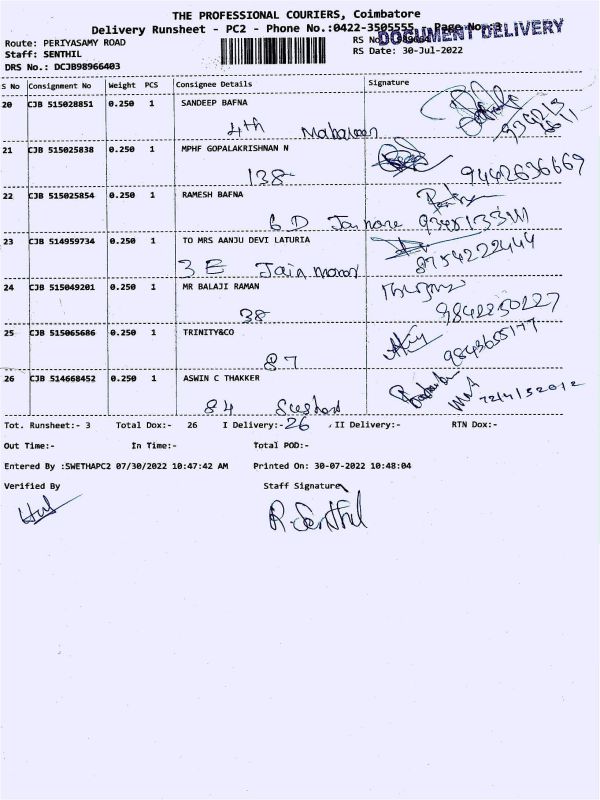 THE PROFESSIONAL COURIERS, Coimbatore
Delivery Runsheet - PC2 - Phone No.:0422-3505555, Page No.:3
DOCUMENT DELIVERY
Route: PERIYASAMY ROAD
RS No.:
Staff: SENTHIL
RS Date: 30-Jul-2022
DRS No.: DCJB98966403
S No Consignment No Weight PCS Consignee Details Signature
20 CJB 515028851 0.250 1 SANDEEP BAFNA
4th
21 CJB 515025838 0.250 1 MPHF GOPALAKRISHNAN N
138 9442636669
22 CJB 515025854 0.250 1 RAMESH BAFNA
6 D
23 CJB 514959734 0.250 1 TO MRS AANJU DEVI LATURIA
3 E Jain 8754222444
24 CJB 515049201 0.250 1 MR BALAJI RAMAN
38 9842230227
25 CJB 515065686 0.250 1 TRINITY&CO
87 9843655177
26 CJB 514668452 0.250 1 ASWIN C THAKKER
84
Tot. Runsheet:- 3 Total Dox:- 26 I Delivery:- 26 , II Delivery:- RTN Dox:-
Out Time:- In Time:- Total POD:-
Entered By :SWETHAPC2 07/30/2022 10:47:42 AM Printed On: 30-07-2022 10:48:04
Verified By Staff Signature
R. Senthil